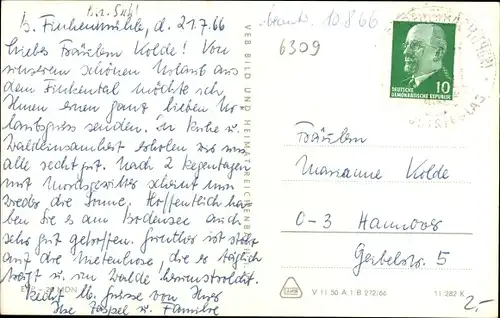 b. Finkenmühle, d. 21.7.66
Liebes Fräulein Kolde! Von
unserem schönen Urlaub aus
dem Finkental möchte ich
Ihnen einen ganz lieben Ur-
laubsgruss senden. In Ruhe u.
Waldeinsamkeit erholen wir uns
alle recht gut. Nach 2 Regentagen
mit Mordsgewitter scheint nun
wieder die Sonne. Hoffentlich ha-
ben Sie es am Bodensee auch
sehr gut getroffen. Günther ist stolz
auf die Nietenhose, die er täglich
trägt u. im Walde herumtollt.
Recht lb. Grüsse von Ihrer
Ilse Zaspel u. Familie
EVP - 20 MDN
VEB BILD UND HEIMAT REICHENBACH
10.8.66
6309
10
DEUTSCHE
DEMOKRATISCHE REPUBLIK
Fräulein
Marianne Kolde
0-3 Hannover
Geibelstr. 5
V 11 50 A 1 B 272/66
11 282 K
2,-